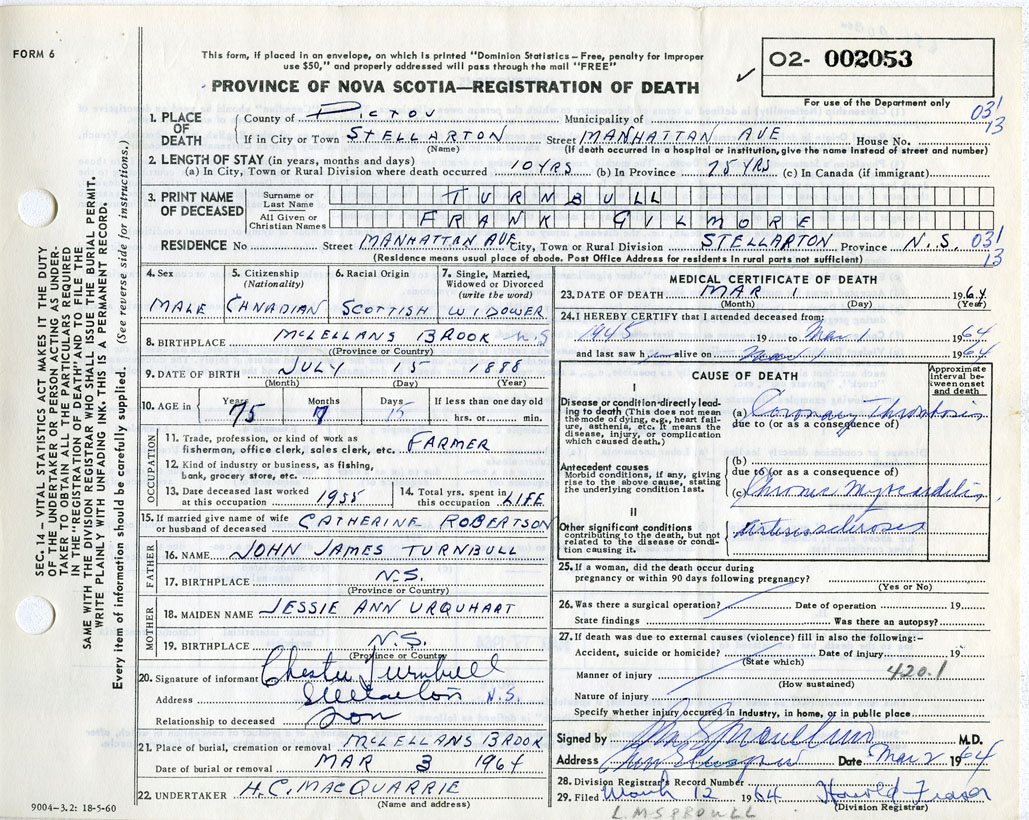 FORM 6
This form, if placed in an envelope, on which is printed "Dominion Statistics – Free, penalty for improper
use $50," and properly addressed will pass through the mail "FREE"
O2- 002053
For use of the Department only
PROVINCE OF NOVA SCOTIA—REGISTRATION OF DEATH
031
13
1. PLACE OF DEATH
County of PICTOU Municipality of
If in City or Town STELLARTON Street MANHATTAN AVE House No.
(Name) (If death occurred in a hospital or institution, give the name instead of street and number)
2. LENGTH OF STAY (in years, months and days)
(a) In City, Town or Rural Division where death occurred 10 YRS (b) In Province 75 YRS (c) In Canada (if immigrant)
3. PRINT NAME OF DECEASED
Surname or Last Name TURNBULL
All Given or Christian Names FRANK GILMORE
RESIDENCE No Street MANHATTAN AVE City, Town or Rural Division STELLARTON Province N.S. 031
13
(Residence means usual place of abode. Post Office Address for residents in rural parts not sufficient)
4. Sex 5. Citizenship (Nationality) 6. Racial Origin 7. Single, Married, Widowed or Divorced (write the word)
MALE CANADIAN SCOTTISH WIDOWER
8. BIRTHPLACE MCLELLANS BROOK N.S
((Province or Country)
9. DATE OF BIRTH JULY 15 1888
(Month) (Day) (Year)
10. AGE in Years Months Days If less than one day old
75 7 15 hrs. or min.
OCCUPATION
11. Trade, profession, or kind of work as
fisherman, office clerk, sales clerk, etc. FARMER
12. Kind of industry or business, as fishing,
bank, grocery store, etc.
13. Date deceased last worked at this occupation 1955
14. Total yrs. spent in this occupation LIFE
15. If married give name of wife or husband of deceased CATHERINE ROBERTSON
FATHER
16. NAME JOHN JAMES TURNBULL
17. BIRTHPLACE N.S.
(Province or Country)
MOTHER
18. MAIDEN NAME JESSIE ANN URQUHART
19. BIRTHPLACE N.S.
(Province or Country)
20. Signature of informant Chester Turnbull
Address Stellarton N.S.
Relationship to deceased Son
21. Place of burial, cremation or removal MCLELLANS BROOK
Date of burial or removal MAR 3 1964
22. UNDERTAKER H.C. MACQUARRIE
(Name and address)
MEDICAL CERTIFICATE OF DEATH
23. DATE OF DEATH MAR 1 1964
(Month) (Day) (Year)
24. I HEREBY CERTIFY that I attended deceased from:
1945 19 to Mar 1 1964
and last saw him alive on Mar 1 1964
CAUSE OF DEATH
Approximate interval between onset and death
I
Disease or condition directly leading to death (This does not mean
the mode of dying, e.g., heart failure, asthenia, etc. It means the
disease, injury, or complication
which caused death.)
(a) Coronary Thrombosis
due to (or as a consequence of)
Antecedent causes
Morbid conditions, if any, giving
rise to the above cause, stating
the underlying condition last.
(b)
due to (or as a consequence of)
(c) Chronic Myocarditis
II
Other significant conditions
contributing to the death, but not
related to the disease or condition causing it.
Arteriosclerosis
25. If a woman, did the death occur during
pregnancy or within 90 days following pregnancy?
(Yes or No)
26. Was there a surgical operation? Date of operation 19
State findings Was there an autopsy?
27. If death was due to external causes (violence) fill in also the following:–
Accident, suicide or homicide? Date of injury 19
(State which)
Manner of injury 420.1
(How sustained)
Nature of injury
Specify whether injury occurred in industry, in home, or in public place
Signed by M.D.
Address Date Mar 2 1964
28. Division Registrar's Record Number
29. Filed March 12 1964 Harold Fraser
(Division Registrar)
L.M SPROULL
9004–3.2: 18-5-60
SEC. 14 – VITAL STATISTICS ACT MAKES IT THE DUTY
OF THE UNDERTAKER OR PERSON ACTING AS UNDERTAKER TO OBTAIN ALL THE PARTICULARS REQUIRED
IN THE "REGISTRATION OF DEATH" AND TO FILE THE
SAME WITH THE DIVISION REGISTRAR WHO SHALL ISSUE THE BURIAL PERMIT.
WRITE PLAINLY WITH UNFADING INK. THIS IS A PERMANENT RECORD.
Every item of information should be carefully supplied. (See reverse side for instructions.)